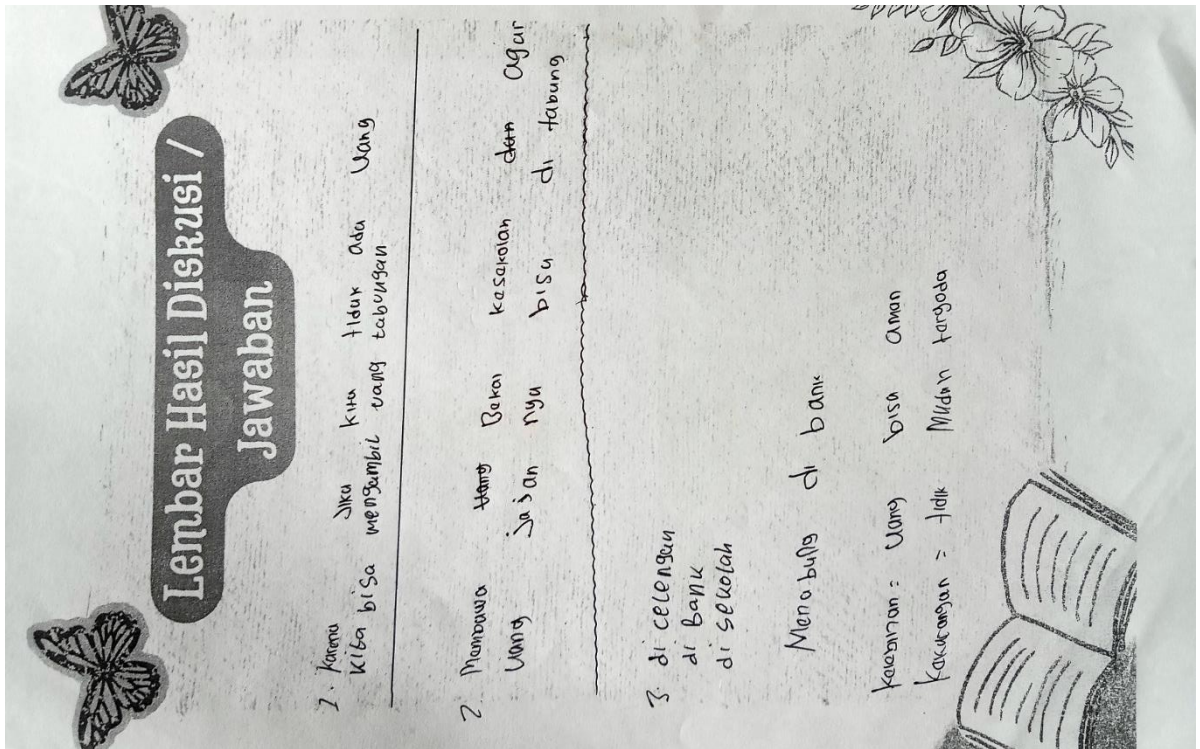 Lembar Hasil Diskusi /
Jawaban
1. Karena Jika kita tidak ada Uang
kita bisa mengambil uang tabungan
2. Membawa Uang Bekal kesekolah dan agar
Uang jajan nya bisa di tabung
3. di celengan
di Bank
di sekolah
Menabung di bank
Kelebihan = Uang bisa aman
Kekurangan = tidk Mudah tergoda